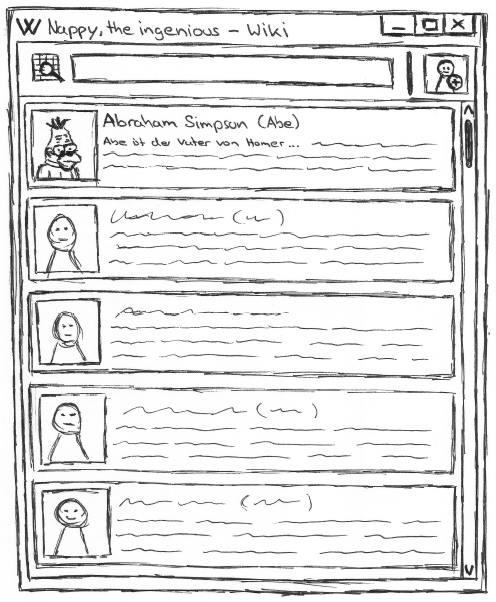 W Nappy, the ingenious – Wiki
Abraham Simpson (Abe)
Abe ist der Vater von Homer...